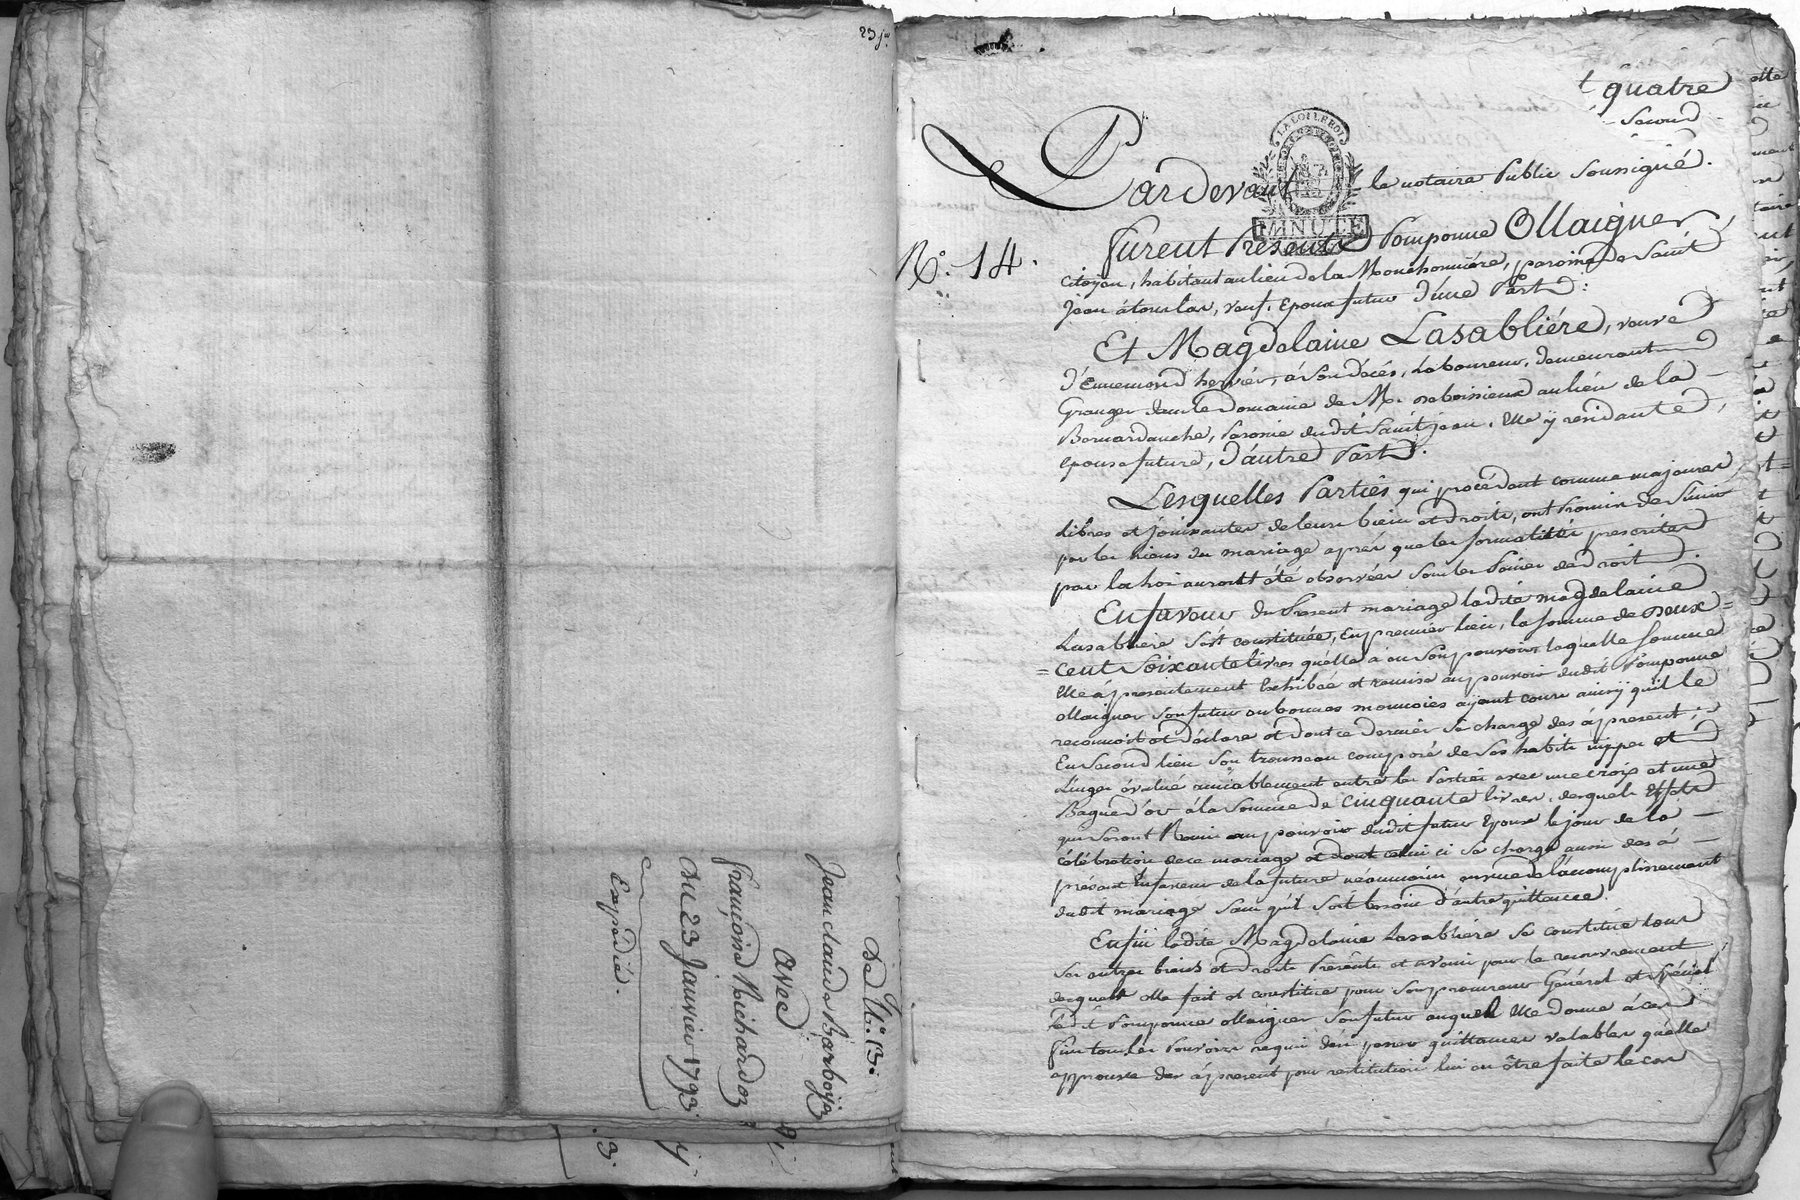 23 j.er
De N.o 13.
Jean claude Barboyon
avec
françoise Richardon
Du 23 Janvier 1793.
Expédié.
3.
quatre
Second
LA LOI LE ROI
MINUTE
Pardevant le notaire Public Soussigné.
N.o 14.
furent Présents Pomponne Ollaigner
citoyen, habitant au lieu de la Mouchonnière, paroisse de Saint
Jean à toulas, veuf, Epoux futur d'une Part:
Et Magdelaine Lasablière, veuve
d'Ennemond hervier, à Son décès, Laboureur, demeurant
Granger dans le domaine de M. deboissieux au lieu de la
Bernardauche, Paroisse dudit Saint jean, Elle y residante,
épouse future, d'autre Part.
Lesquelles Parties qui procédant comme majeures
libres et jouissantes de leurs biens et droits, ont Promis de S'unir
par les liens du mariage après que les formalités prescrites
par la Loi auront été observées sous les Peines de droit.
En faveur du Présent mariage ladite magdelaine
Lasablière S'est constituée, En premier lieu, la somme de Deux =
= cent Soixante livres qu'elle à en Son pouvoir, laquelle somme
Elle à présentement Exhibée et remise au pouvoir dudit Pomponne
ollaigner Son futur en bonnes monnoies ayant cours ainsy qu'il le
reconnoit et déclare et dont ce dernier Se charge dès àprésent;
En Second lieu Son trousseau composé de Ses habits nippes et
Linges évalué amiablement entre les Parties avec une croix et une
Bague d'or à la Somme de cinquante livres, desquels Effets
qui Seront Remis au pouvoir dudit futur Epoux le jour de la
célébration de ce mariage et dont celui ci Se charge aussi dès à
présent En faveur de la future néanmoins l'accomplissement
dudit mariage Sans qu'il Soit besoin d'autre quittance.
Enfin ladite Magdelaine Lasablière Se constitue tous
Ses autres biens et droits Présents et avenir pour le recouvrement
desquels elle fait et constitue pour Son procureur Général et Spécial
ledit Pomponne ollaigner Son futur auquel Elle donne à ces
fins tous les Pouvoirs requis d'en passer quittances valables qu'elle
approuve dès àprésent pour restitution lui en être faite le cas